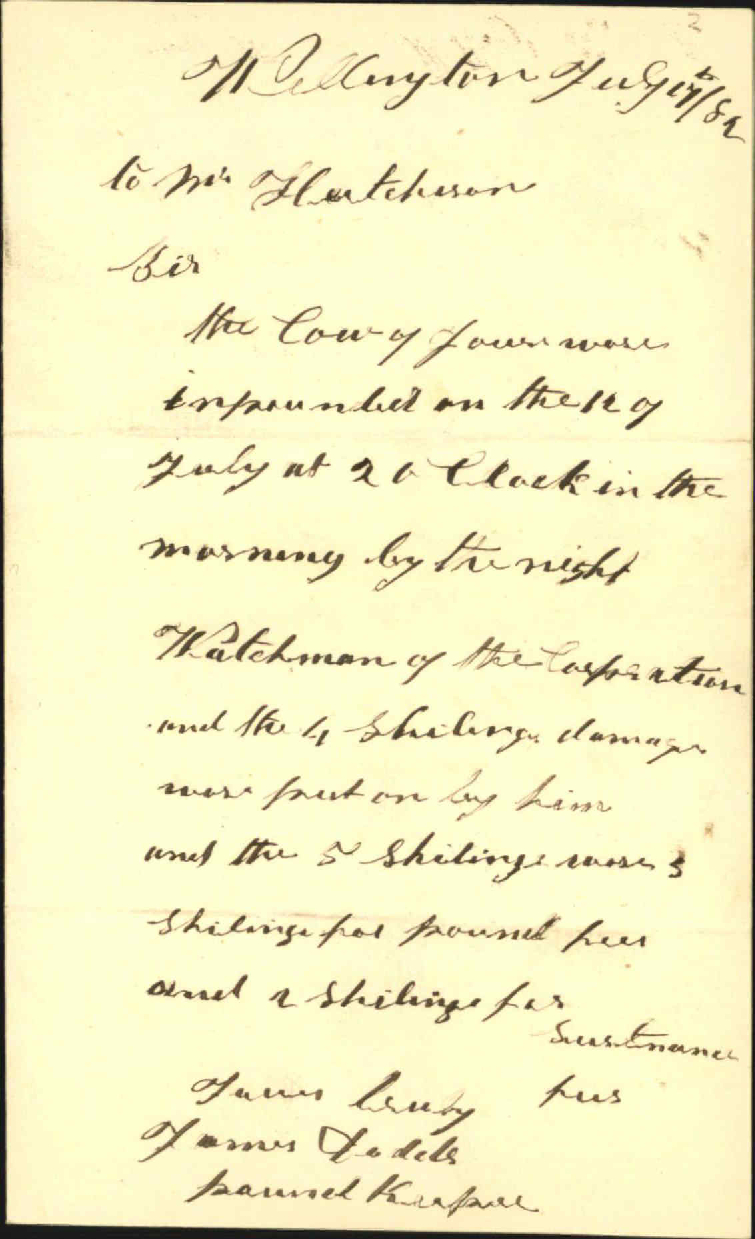 Wellington July 17th/82
to Mr Hutcheson
Sir
the Cow of yours wose
inpounded on the 12 of
July at 2 O Clock in the
morning by the night
Watchman of the Corporation
and the 4 Shilings damages
wose put on by him
and the 5 Shilings wose 3
Shilings for pound fees
and 2 Shilings for
Sustnance
fees
Youres truly
James Dodds
pound Keeper